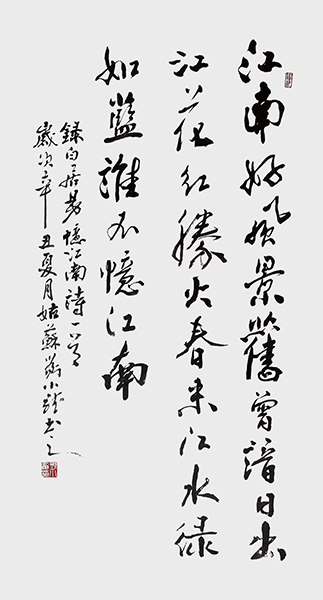 江南好風景舊曾諳日出
江花紅勝火春來江水緑
如藍誰不憶江南
録白居易憶江南詩一首
歲次辛丑夏月姑蘇小書之